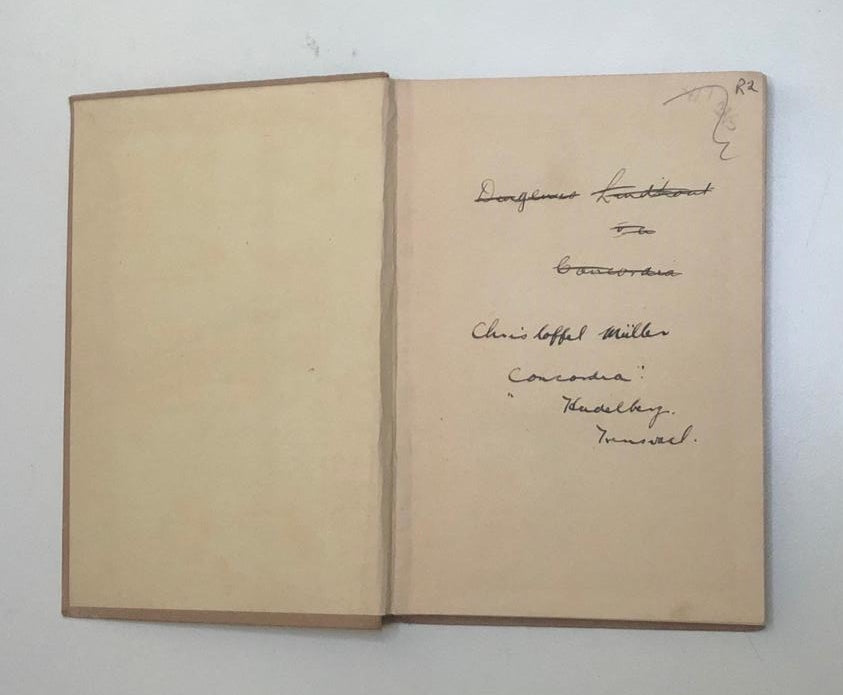 R2
Dingenus Lindhout
Concordia
Christoffel Müller
"Concordia"
Heidelberg.
Transvaal.